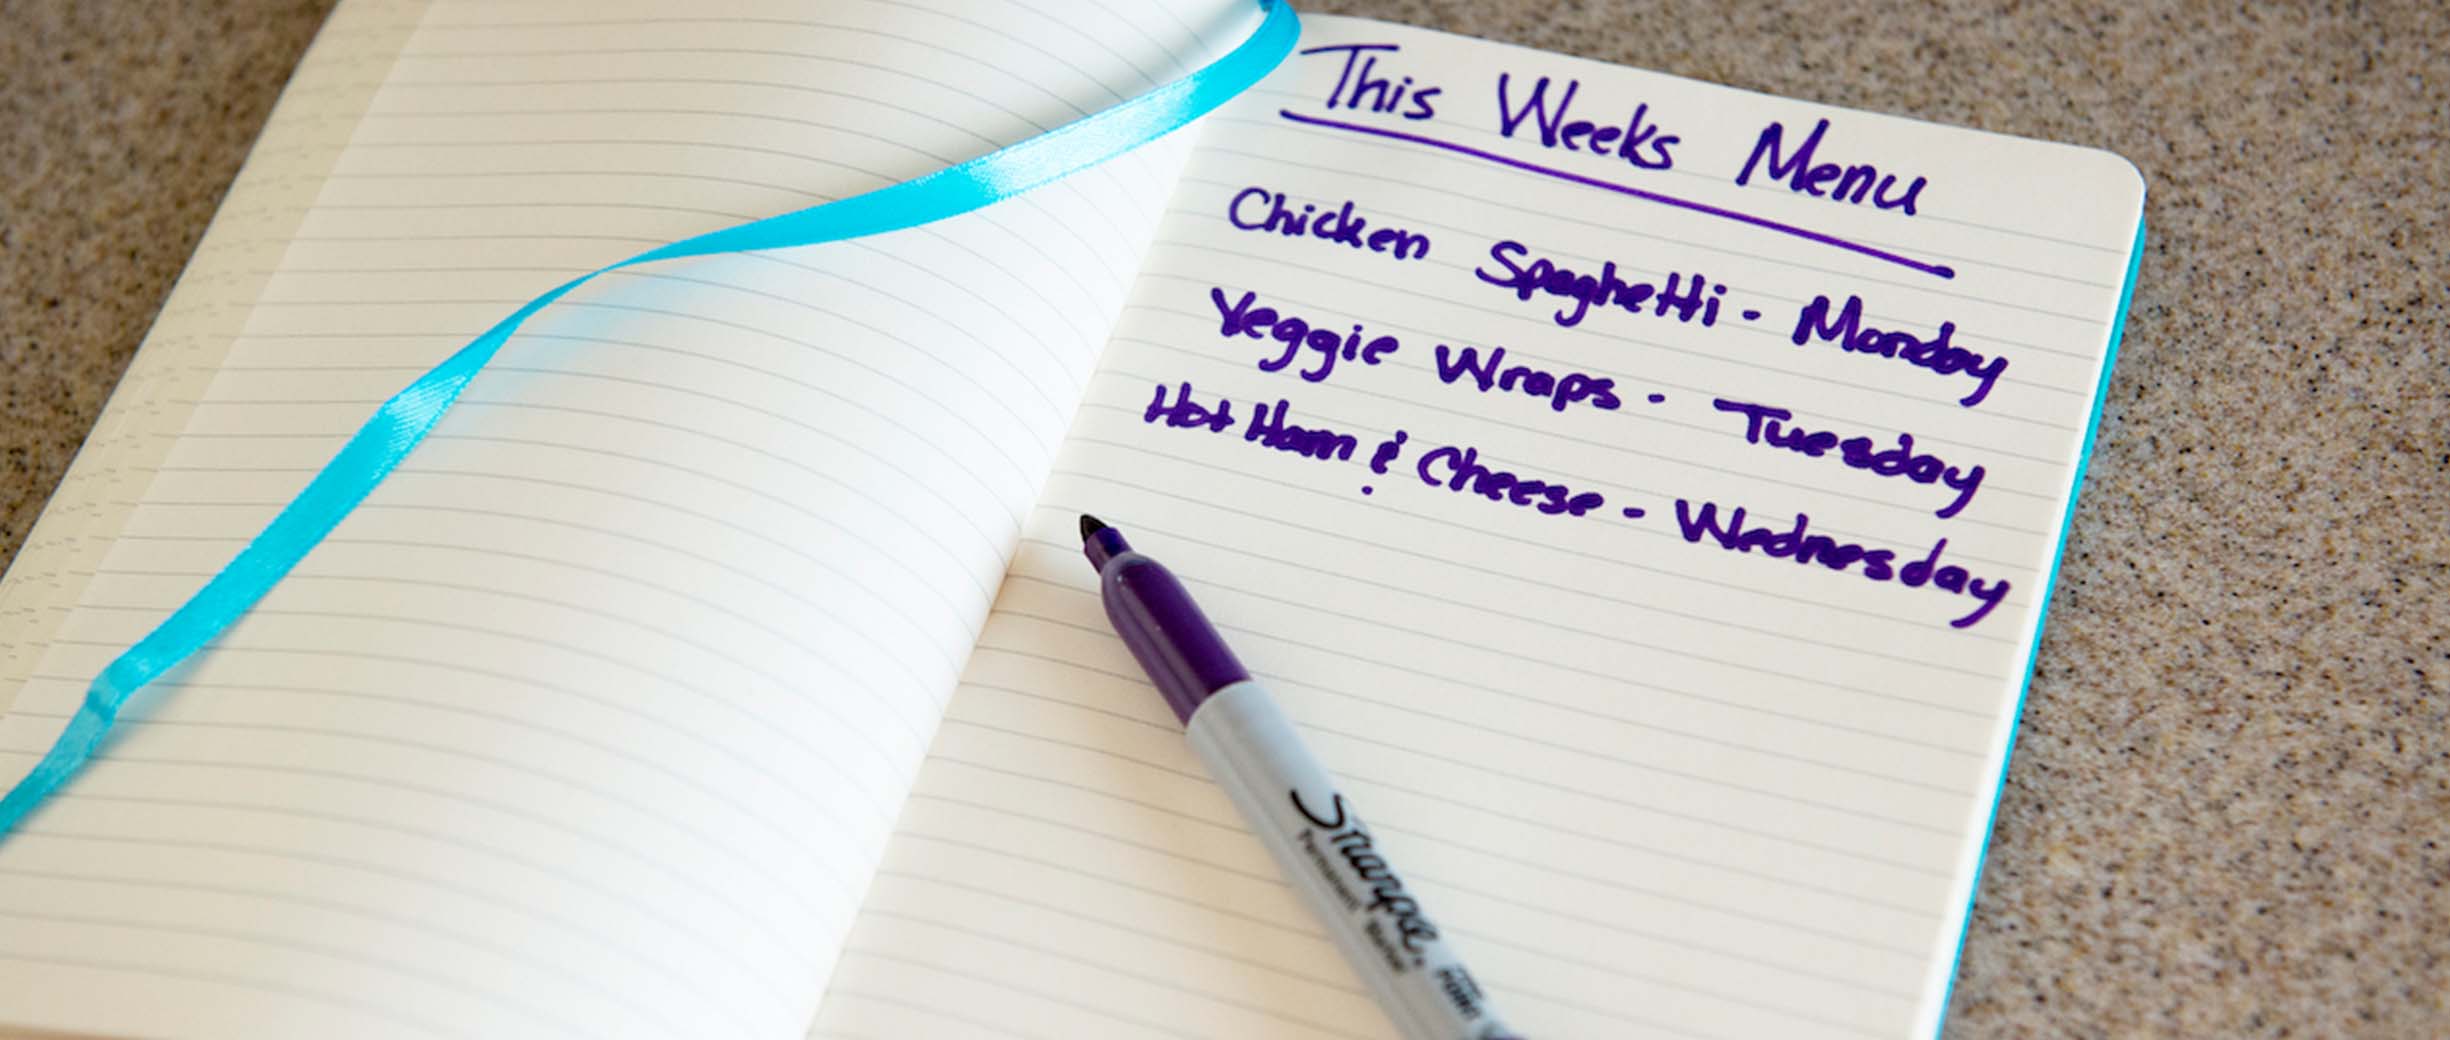 This Weeks Menu
Chicken Spaghetti - Monday
Veggie Wraps - Tuesday
Hot Ham & Cheese - Wednesday
Sharpie
Permanent Marker
FINE POINT